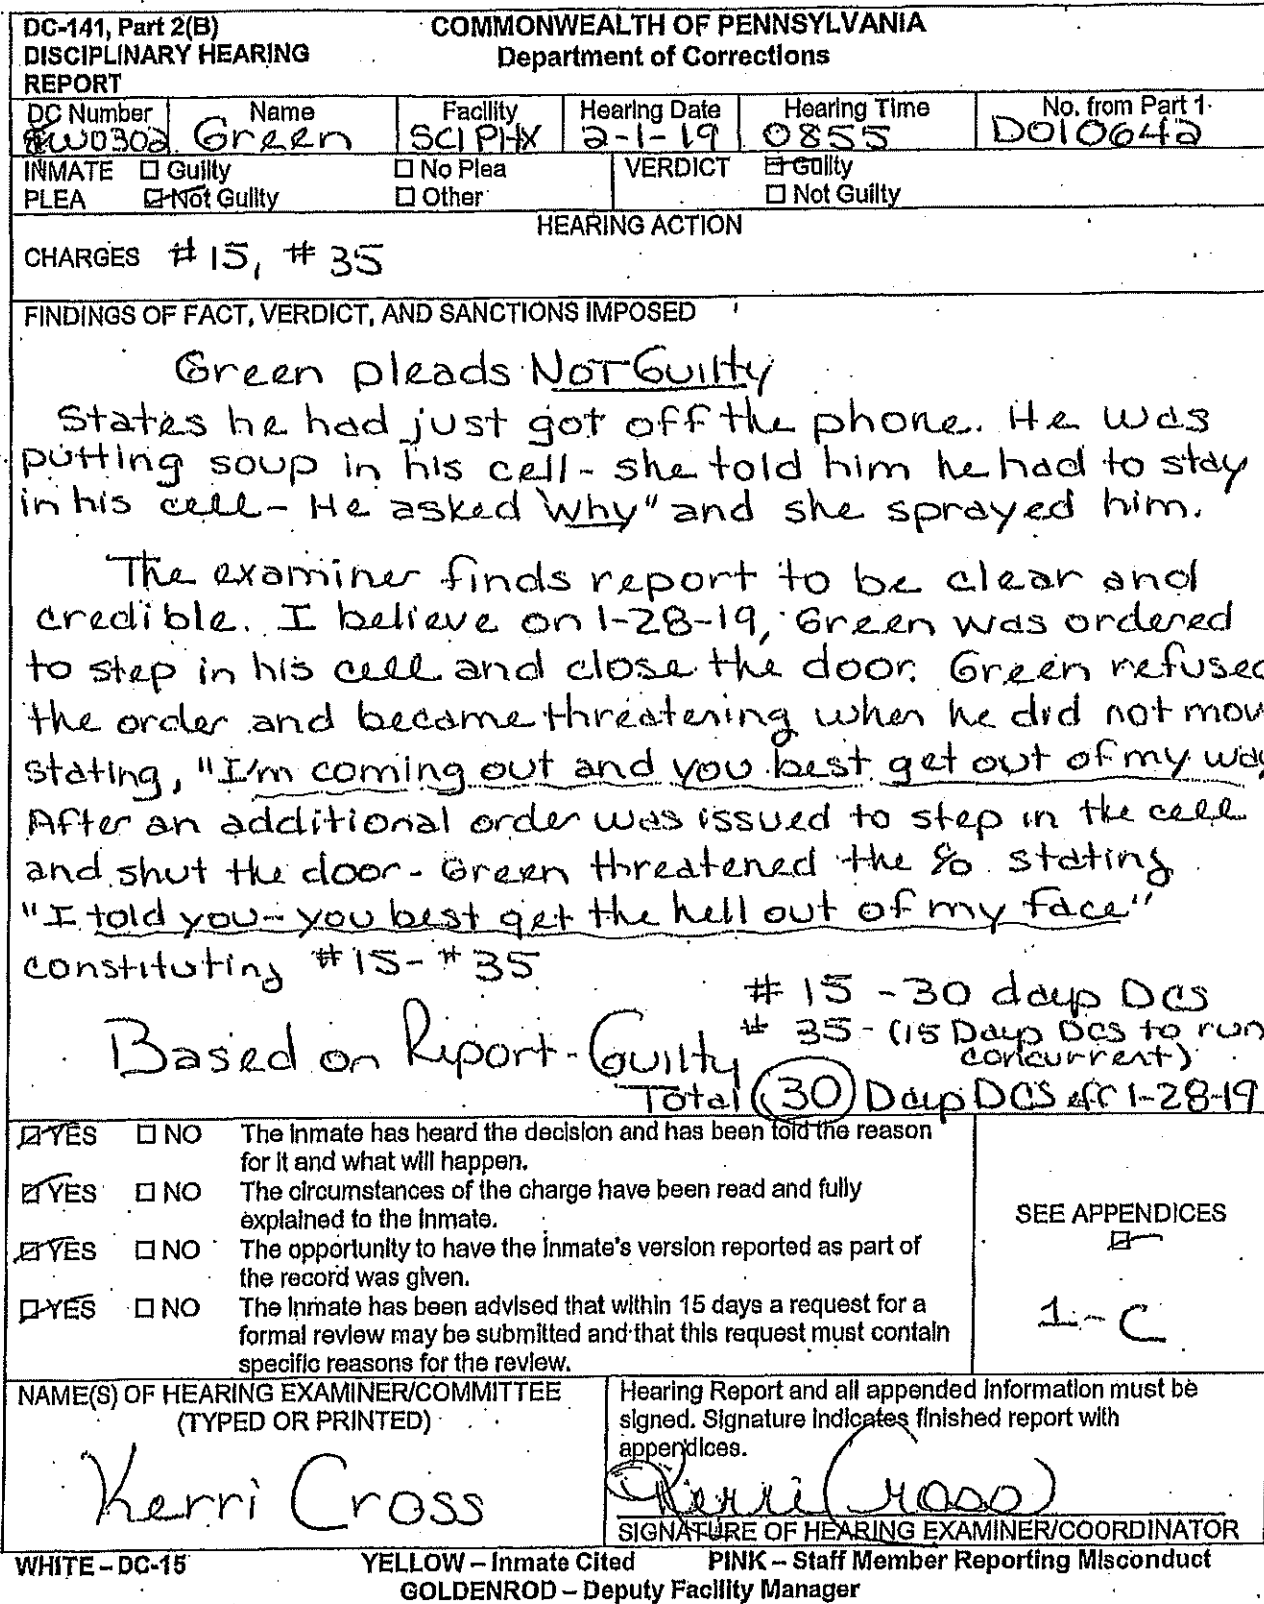 DC-141, Part 2(B) COMMONWEALTH OF PENNSYLVANIA
DISCIPLINARY HEARING Department of Corrections
REPORT
DC Number Name Facility Hearing Date Hearing Time No. from Part 1
Green SCI PHX 2-1-19 0855 D010642
INMATE ☐ Guilty ☐ No Plea VERDICT ☑ Guilty
PLEA ☑ Not Guilty ☐ Other ☐ Not Guilty
HEARING ACTION
CHARGES #15, #35
FINDINGS OF FACT, VERDICT, AND SANCTIONS IMPOSED
Green pleads Not Guilty
States he had just got off the phone. He was
putting soup in his cell - she told him he had to stay
in his cell - He asked "why" and she sprayed him.
The examiner finds report to be clear and
credible. I believe on 1-28-19, Green was ordered
to step in his cell and close the door. Green refused
the order and became threatening when he did not mov
stating, "I'm coming out and you best get out of my way
After an additional order was issued to step in the cell
and shut the door - Green threatened the c/o stating
"I told you - you best get the hell out of my face"
constituting #15 - #35
#15 - 30 days DCS
Based on Report - Guilty # 35 - (15 Days DCS to run
concurrent)
Total (30) Days DCS eff 1-28-19
☑ YES ☐ NO The inmate has heard the decision and has been told the reason
for it and what will happen.
☑ YES ☐ NO The circumstances of the charge have been read and fully
explained to the inmate.
SEE APPENDICES
☑
☑ YES ☐ NO The opportunity to have the inmate's version reported as part of
the record was given.
☑ YES ☐ NO The inmate has been advised that within 15 days a request for a
formal review may be submitted and that this request must contain
specific reasons for the review.
1-C
NAME(S) OF HEARING EXAMINER/COMMITTEE
(TYPED OR PRINTED)
Kerri Cross
Hearing Report and all appended information must be
signed. Signature indicates finished report with
appendices.
Kerri Cross
SIGNATURE OF HEARING EXAMINER/COORDINATOR
WHITE – DC-15 YELLOW – Inmate Cited PINK – Staff Member Reporting Misconduct
GOLDENROD – Deputy Facility Manager